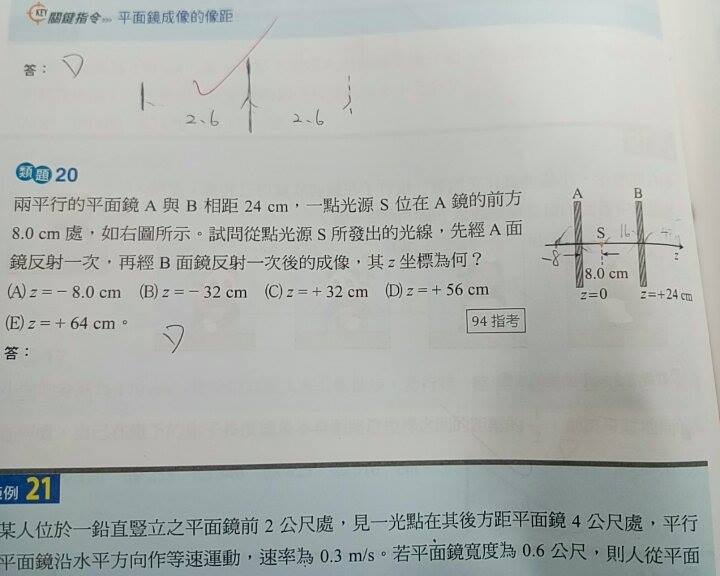 KEY 關鍵指令 平面鏡成像的像距
答：D
2.6 2.6
類題20
兩平行的平面鏡 A 與 B 相距 24 cm，一點光源 S 位在 A 鏡的前方
8.0 cm 處，如右圖所示。試問從點光源 S 所發出的光線，先經 A 面
鏡反射一次，再經 B 面鏡反射一次後的成像，其 z 坐標為何？
(A) z = − 8.0 cm (B) z = − 32 cm (C) z = + 32 cm (D) z = + 56 cm
(E) z = + 64 cm。
94 指考
答：
D
A B
S 16
-8
8.0 cm
z
z=0 z=+24 cm
範例 21
某人位於一鉛直豎立之平面鏡前 2 公尺處，見一光點在其後方距平面鏡 4 公尺處，平行
平面鏡沿水平方向作等速運動，速率為 0.3 m/s。若平面鏡寬度為 0.6 公尺，則人從平面